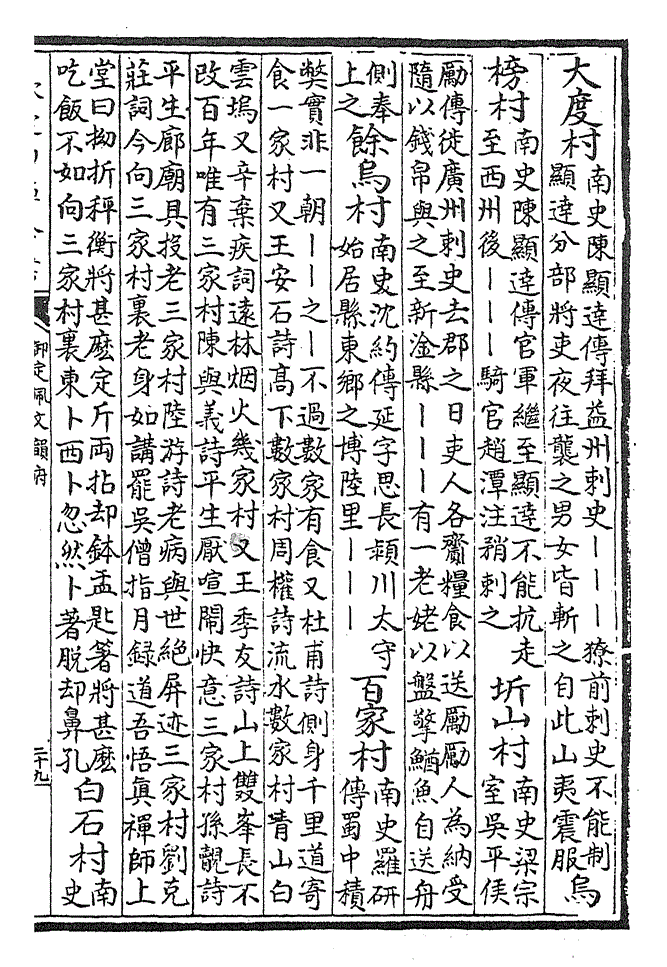 大度村南史陳顯達傳拜益州刺史丨丨丨獠前刺史不能制
顯達分部將吏夜往襲之男女皆斬之自此山夷震服烏
榜村南史陳顯達傳官軍繼至顯達不能抗走
至西州後丨丨丨騎官趙潭注矟刺之
圻山村南史梁宗
室吳平侯
勵傳徙廣州刺史去郡之日吏人各齎糧食以送勵勵人為納受
隨以錢帛與之至新淦縣丨丨丨有一老姥以盤擎鰌魚自送舟
側奉
上之
餘烏村南史沈約傳延字思長潁川太守
始居縣東鄉之博陸里丨丨丨
百家村南史羅研
傳蜀中積
獘實非一朝丨丨之丨不過數家有食又杜甫詩側身千里道寄
食一家村又王安石詩高下數家村周權詩流水數家村青山白
雲塢又辛棄疾詞遠林烟火幾家村又王季友詩山上雙峯長不
改百年唯有三家村陳與義詩平生厭喧鬧快意三家村孫覿詩
平生廊廟具投老三家村陸游詩老病與世絶屏迹三家村劉克
莊詞今向三家村裏老身如講罷吳僧指月録道吾悟真禪師上
堂曰拗折秤衡將甚麽定斤兩拈却鉢盂匙箸將甚麽
吃飯不如向三家村裏東卜西卜忽然卜著脱却鼻孔
白石村南
史
御定佩文韻府
二十九